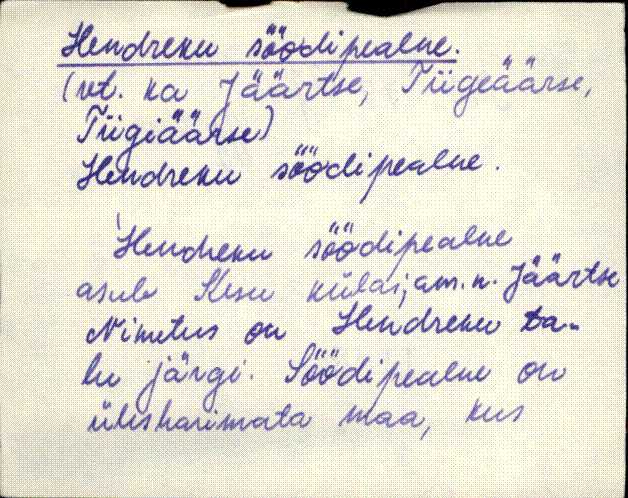 Hendreku söödipealne.
(vt. ka Jäärtse, Tiigeäärse,
Tiigiäärse)
Hendreku söödipealne.
'Hendreku söödipealne
asub Kesu külas, am. n. Jäärtse
Nimetus on Hendreku ta-
lu järgi. Söödipealne on
ülesharimata maa, kus